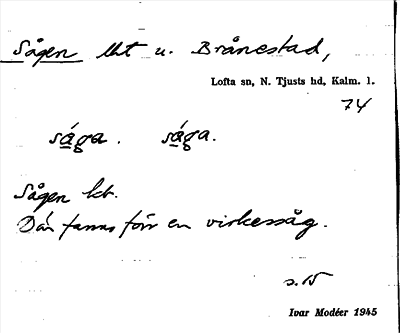 Sågen lht u. Brånestad,
Lofta sn, N. Tjusts hd, Kalm. l.
74
såga. såga.
Sågen kt.
Där fanns förr en virkessåg.
Ivar Modéer 1945